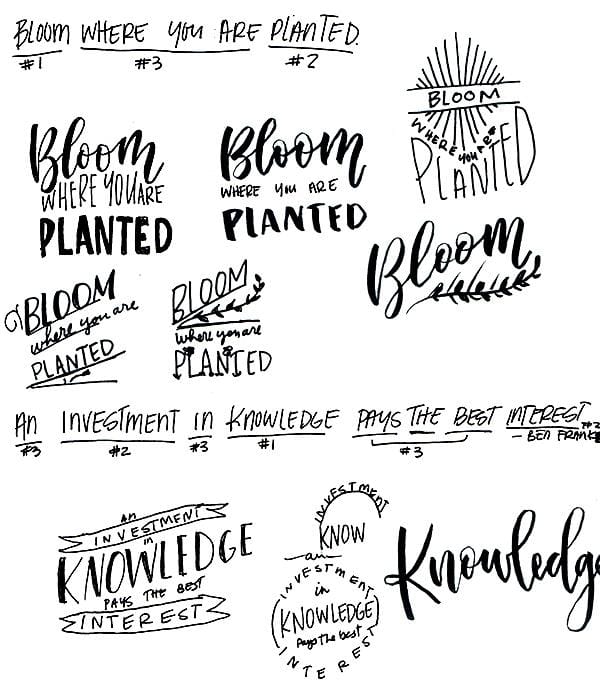 BLOOM WHERE YOU ARE PLANTED.
#1 #3 #2
BLOOM
WHERE YOU ARE
PLANTED
Bloom
WHERE YOU ARE
PLANTED
Bloom
WHERE YOU ARE
PLANTED
Bloom
BLOOM
where you are
PLANTED
BLOOM
where you are
PLANTED
AN INVESTMENT IN KNOWLEDGE PAYS THE BEST INTEREST
#3 #2 #3 #1 #3 #2
- BEN FRANK
AN
INVESTMENT
in
KNOWLEDGE
PAYS THE BEST
INTEREST
INVESTMENT
KNOW
an
INVESTMENT
in
KNOWLEDGE
Pays the best
INTEREST
Knowledge